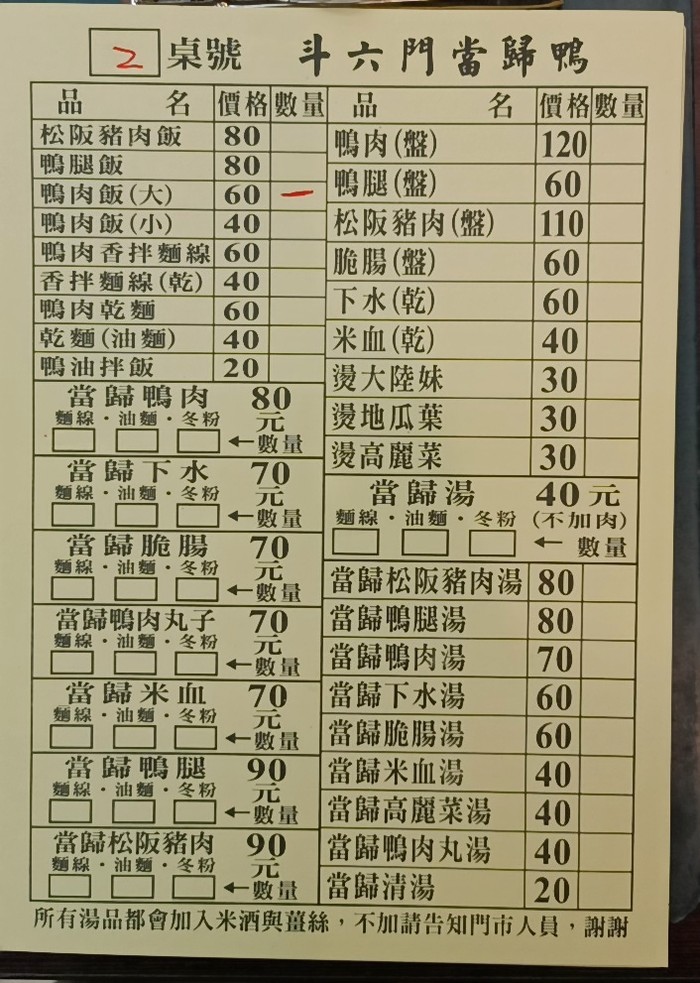 2 桌號 斗六門當歸鴨
品名 價格 數量
松阪豬肉飯 80
鴨腿飯 80
鴨肉飯(大) 60 一
鴨肉飯(小) 40
鴨肉香拌麵線 60
香拌麵線(乾) 40
鴨肉乾麵 60
乾麵(油麵) 40
鴨油拌飯 20
當歸鴨肉 80元
麵線・油麵・冬粉
←數量
當歸下水 70元
麵線・油麵・冬粉
←數量
當歸脆腸 70元
麵線・油麵・冬粉
←數量
當歸鴨肉丸子 70元
麵線・油麵・冬粉
←數量
當歸米血 70元
麵線・油麵・冬粉
←數量
當歸鴨腿 90元
麵線・油麵・冬粉
←數量
當歸松阪豬肉 90元
麵線・油麵・冬粉
←數量
品名 價格 數量
鴨肉(盤) 120
鴨腿(盤) 60
松阪豬肉(盤) 110
脆腸(盤) 60
下水(乾) 60
米血(乾) 40
燙大陸妹 30
燙地瓜葉 30
燙高麗菜 30
當歸湯 40元
麵線・油麵・冬粉 (不加肉)
← 數量
當歸松阪豬肉湯 80
當歸鴨腿湯 80
當歸鴨肉湯 70
當歸下水湯 60
當歸脆腸湯 60
當歸米血湯 40
當歸高麗菜湯 40
當歸鴨肉丸湯 40
當歸清湯 20
所有湯品都會加入米酒與薑絲，不加請告知門市人員，謝謝